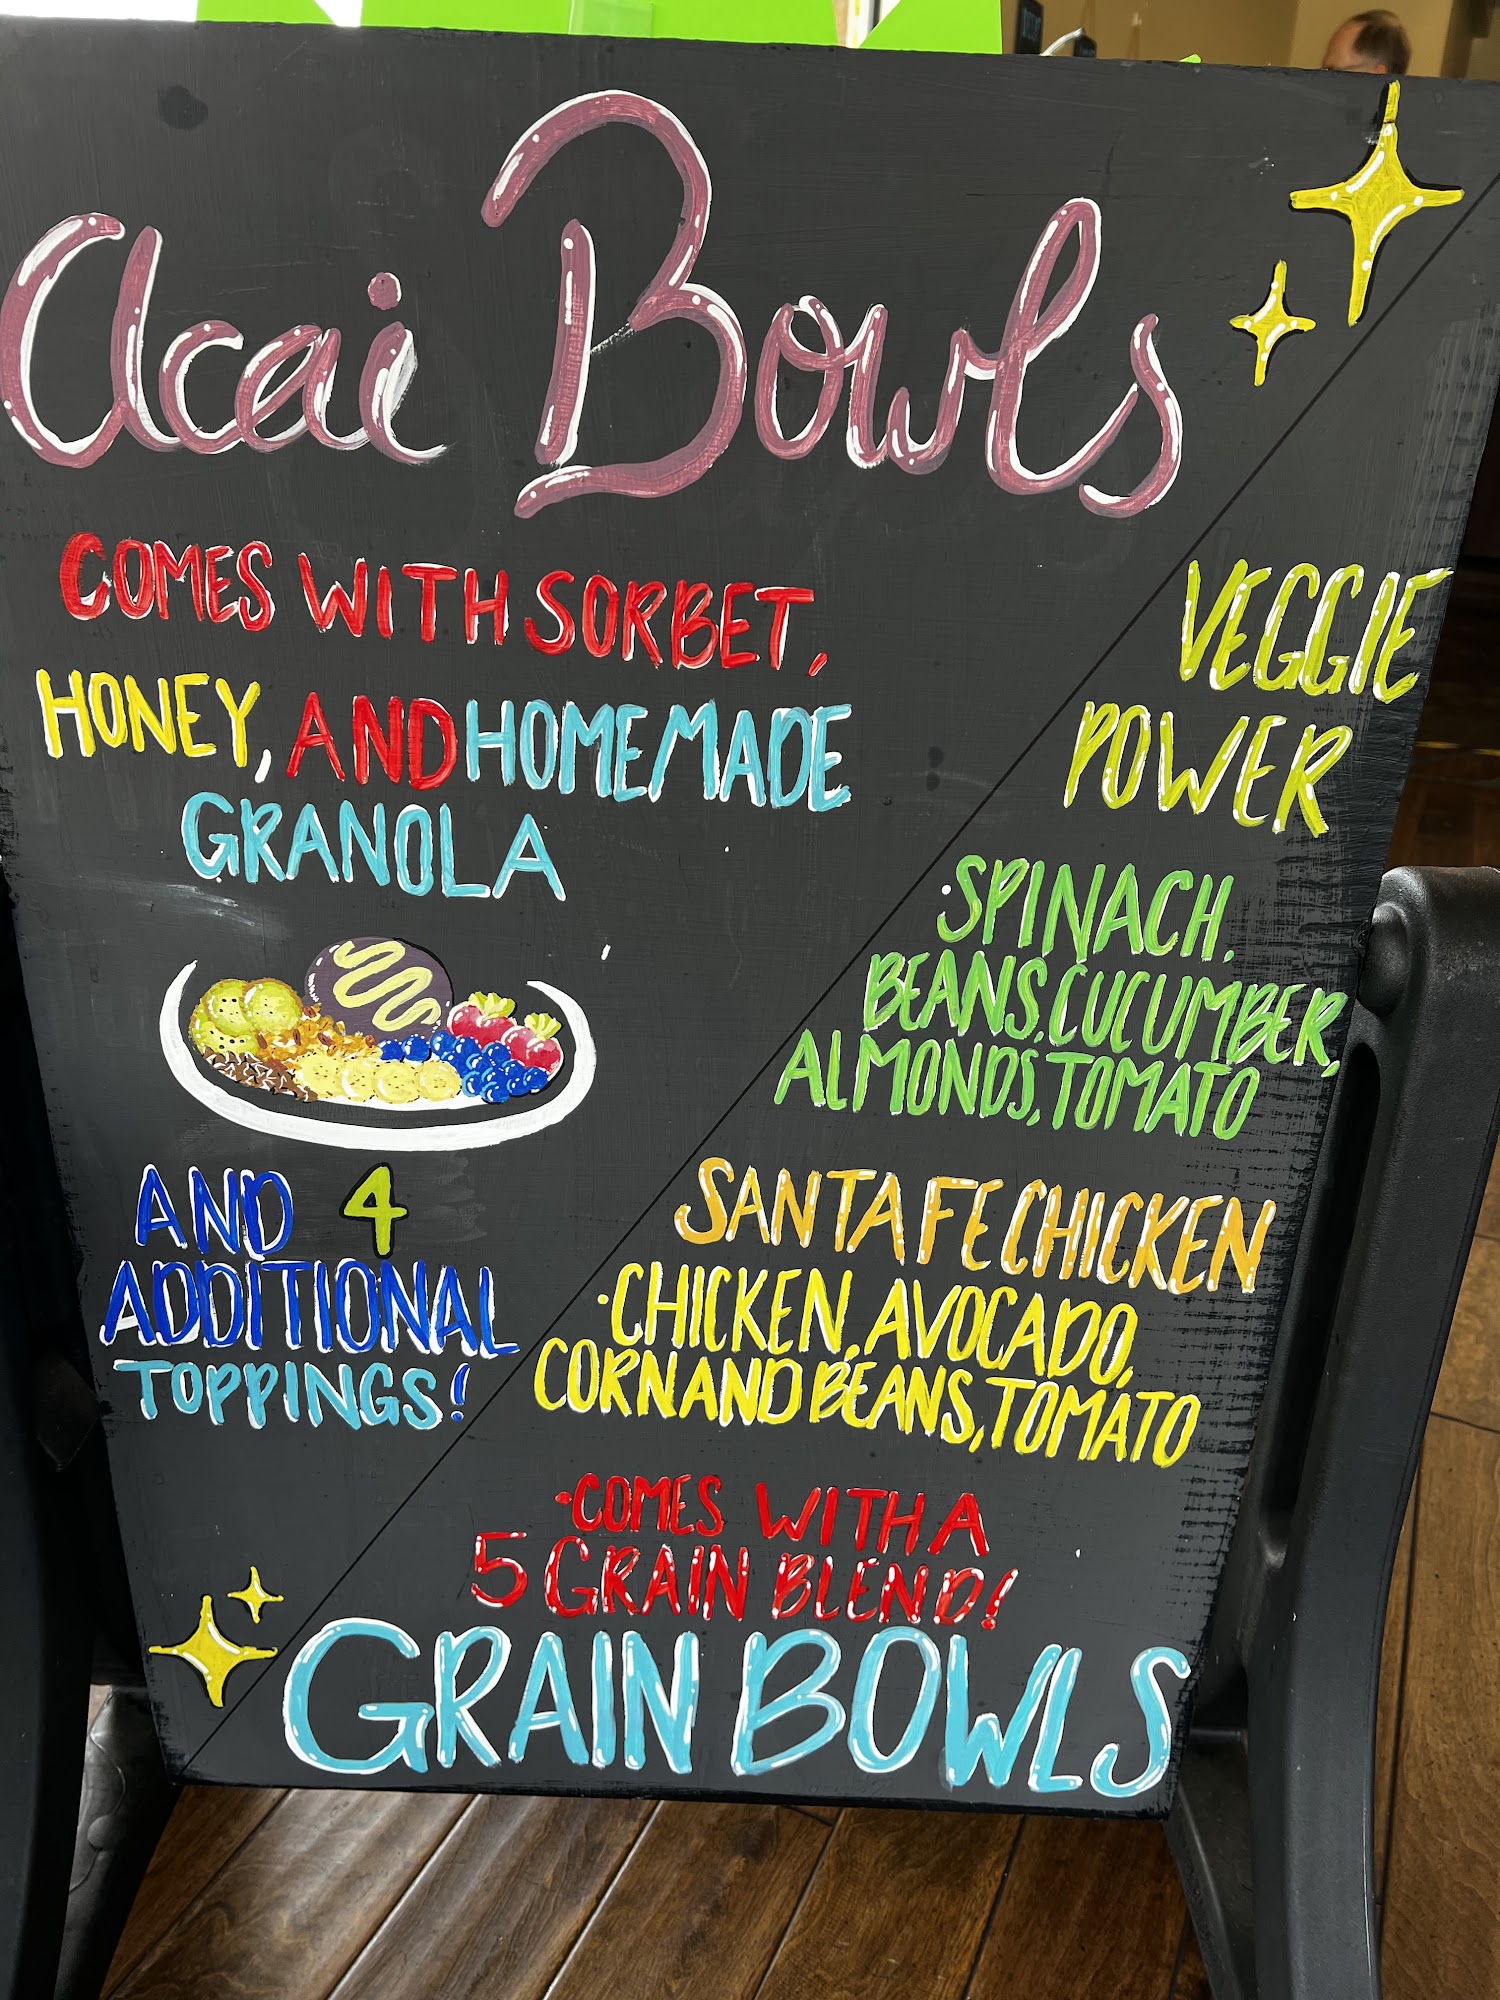 Acai Bowls
COMES WITH SORBET,
HONEY, AND HOMEMADE
GRANOLA
AND 4
ADDITIONAL
TOPPINGS!
VEGGIE
POWER
·SPINACH.
BEANS,CUCUMBER,
ALMONDS,TOMATO
SANTA FE CHICKEN
·CHICKEN, AVOCADO,
CORN AND BEANS, TOMATO
·COMES WITH A
5 GRAIN BLEND!
GRAIN BOWLS